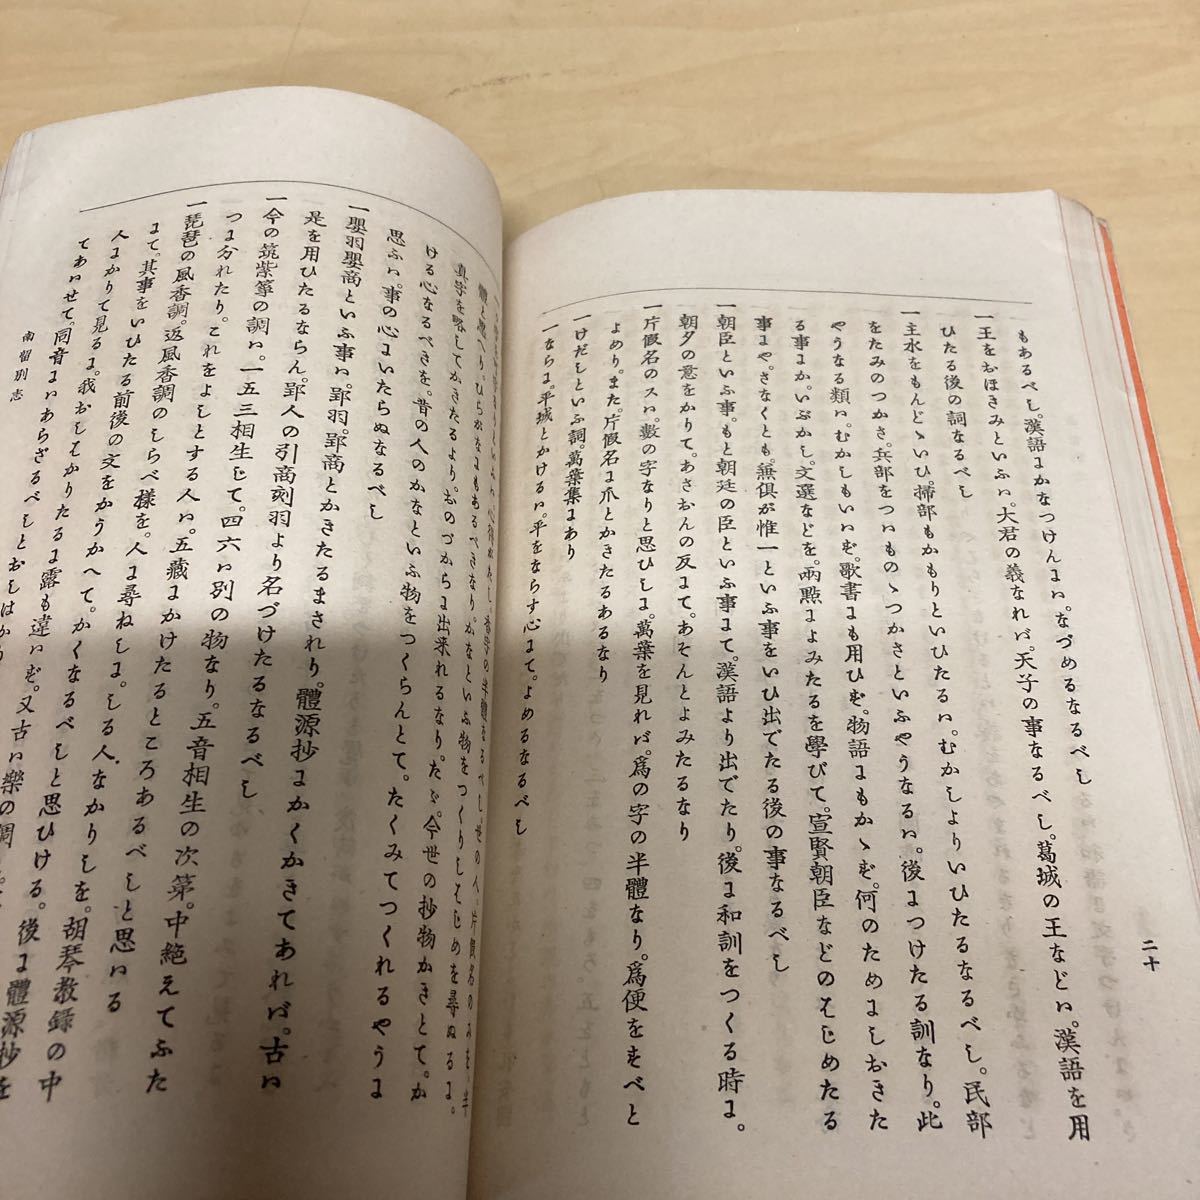 二十
もあるべし。漢語にかなつけんは。なづめるなるべし
一王をおほきみといふは。大君の義なれば。天子の事なるべし。葛城の王などは。漢語を用
ひたる後の詞なるべし
一主水をもんどゝいひ。掃部もかもりといひたるは。むかしよりいひたるなるべし。民部
をたみのつかさ。兵部をつはものゝつかさといふやうなるは。後につけたる訓なり。此
やうなる類は。むかしもいはず。歌書にも用ひず。物語にもかゝず。何のためにしおきた
る事にか。いぶかし。文選などを。兩點によみたるを學びて。宣賢朝臣などのはじめたる
事にや。さなくとも。無倶が惟一といふ事をいひ出でたる後の事なるべし
一朝臣といふ事。もと朝廷の臣といふ事にて。漢語より出でたり。後に和訓をつくる時に。
朝夕の意をかりて。あさおんの反にて。あそんとよみたるなり
一片假名のスは。數の字なりと思ひしに。萬葉を見れば。爲の字の半體なり。爲便をすべと
よめり。また。片假名に爪とかきたるあるなり
一けだしといふ詞。萬葉集にあり
一ならに。平城とかけるは。平をならす心にて。よめるなるべし
體と思へり。ひらがなにもあるべきなり。かなといふ物をつくりしはじめを尋ぬるに。
眞字を略してかきたるより。おのづからに出來れるなり。たゞ。今世の抄物かきとて。か
ける心なるべきを。昔の人のかなといふ物をつくらんとて。たくみてつくれるやうに
思ふは。事の心にいたらぬなるべし
一嬰羽嬰商といふ事は。郢羽。郢商とかきたるまされり。體源抄にかくかきてあれば。古は
是を用ひたるならん。郢人の引商刻羽より名づけたるなるべし
一今の筑紫箏の調は。一五三相生じて。四六は別の物なり。五音相生の次第。中絶えてふた
つに分れたり。これをよしとする人は。五藏にかけたるところあるべしと思はる
一琵琶の風香調。返風香調のしらべ樣を。人に尋ねしに。しる人なかりしを。胡琴敎録の中
にて。其事をいひたる前後の文をかうがへて。かくなるべしと思ひける。後に體源抄を
人にかりて見るに。我おしはかりたるに露も違はず。又古は樂の調
てあはせて。同音にはあらざるべしとおしはかり
南留別志